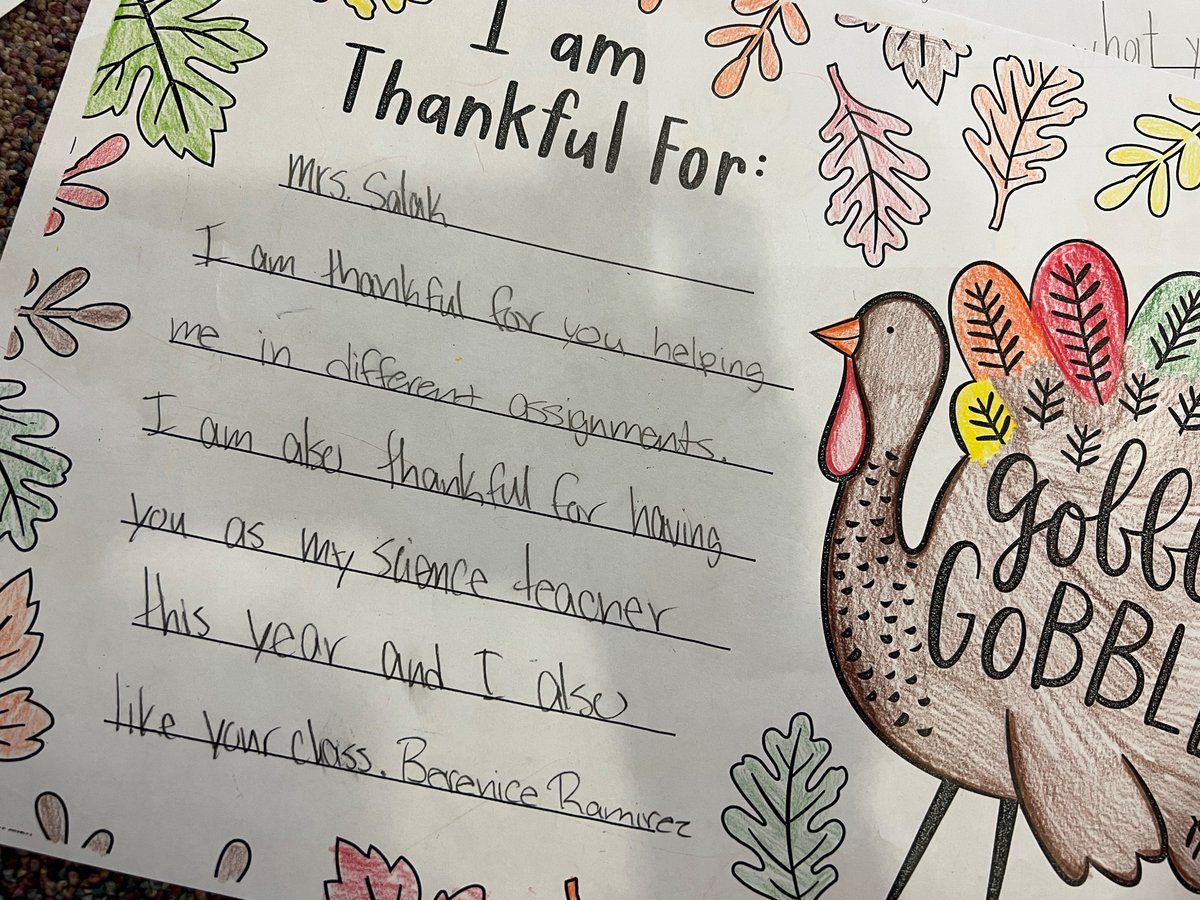 what y
I am
Thankful For:
Mrs. Salak
I am thankful for you helping
me in different assignments.
I am also thankful for having
you as my science teacher
this year and I also
like your class. Berenice Ramirez
gobb
GOBBL